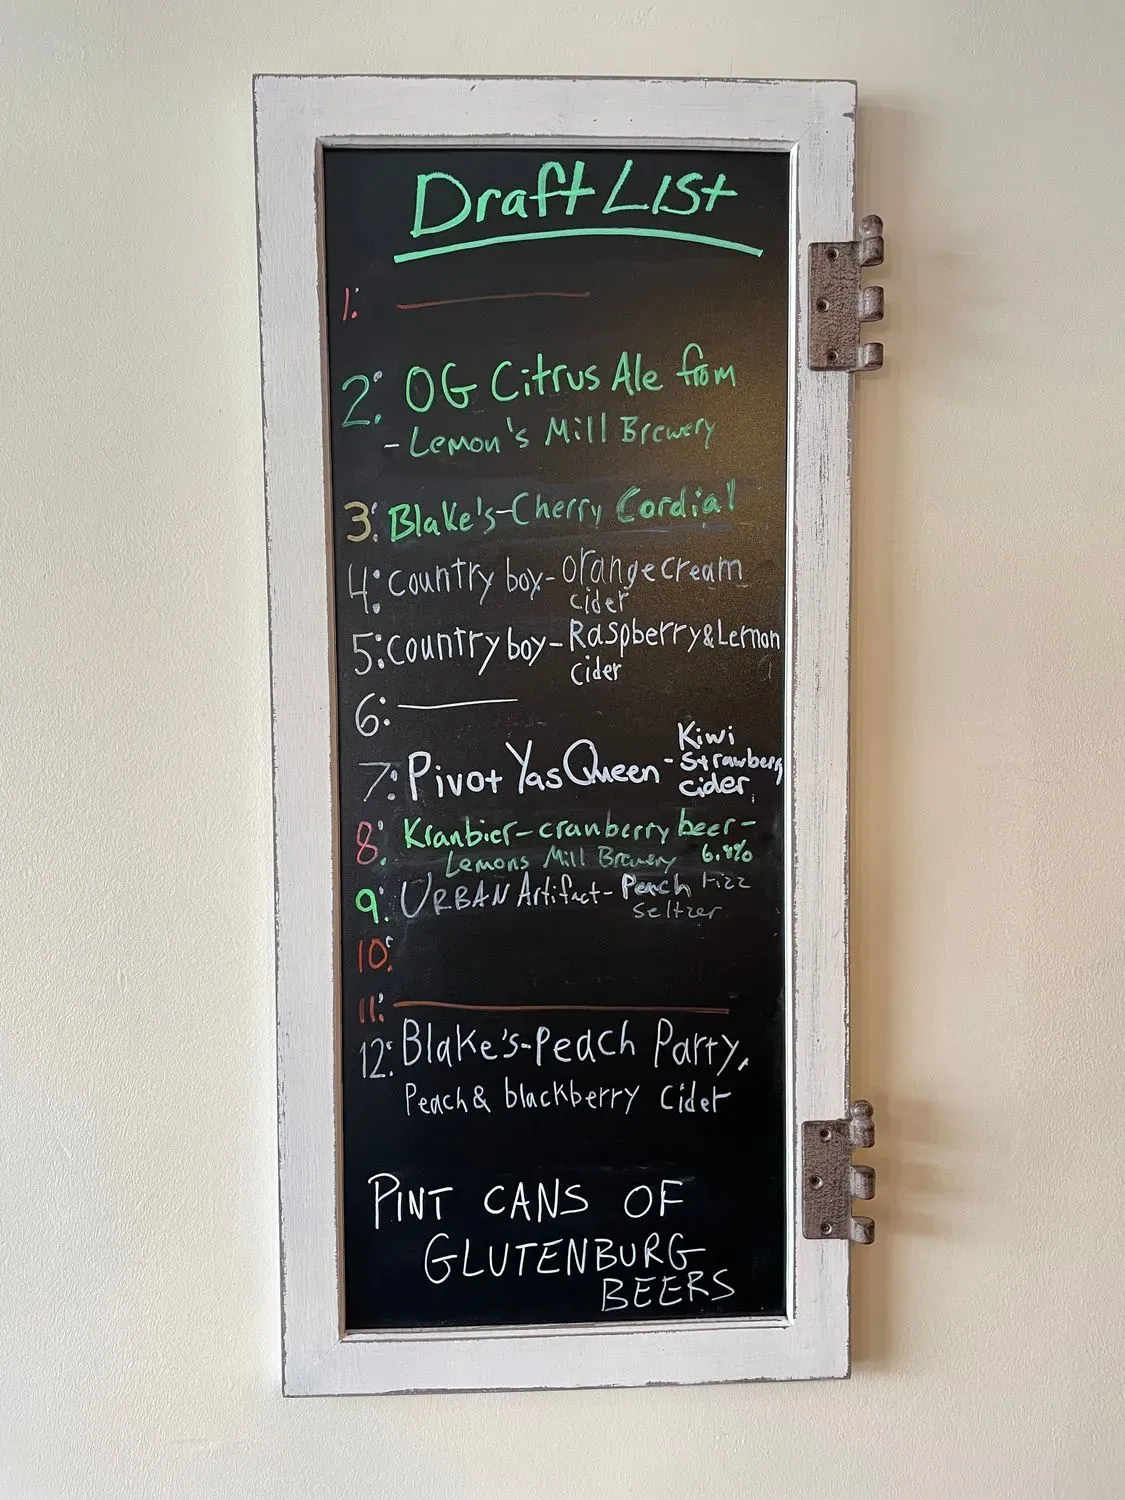 Draft List
1:
2: OG Citrus Ale from
- Lemon's Mill Brewery
3: Blake's-Cherry Cordial
4: Country boy - orange cream
cider
5: Country boy - Raspberry & Lemon
Cider
6:
7: Pivot Yas Queen - Kiwi
Strawberry
cider
8: Kranbier - cranberry beer -
Lemons Mill Brewery 6.8%
9: URBAN Artifact - Peach Fizz
Seltzer
10:
11:
12: Blake's-Peach Party,
Peach & blackberry Cider
PINT CANS OF
GLUTENBURG
BEERS